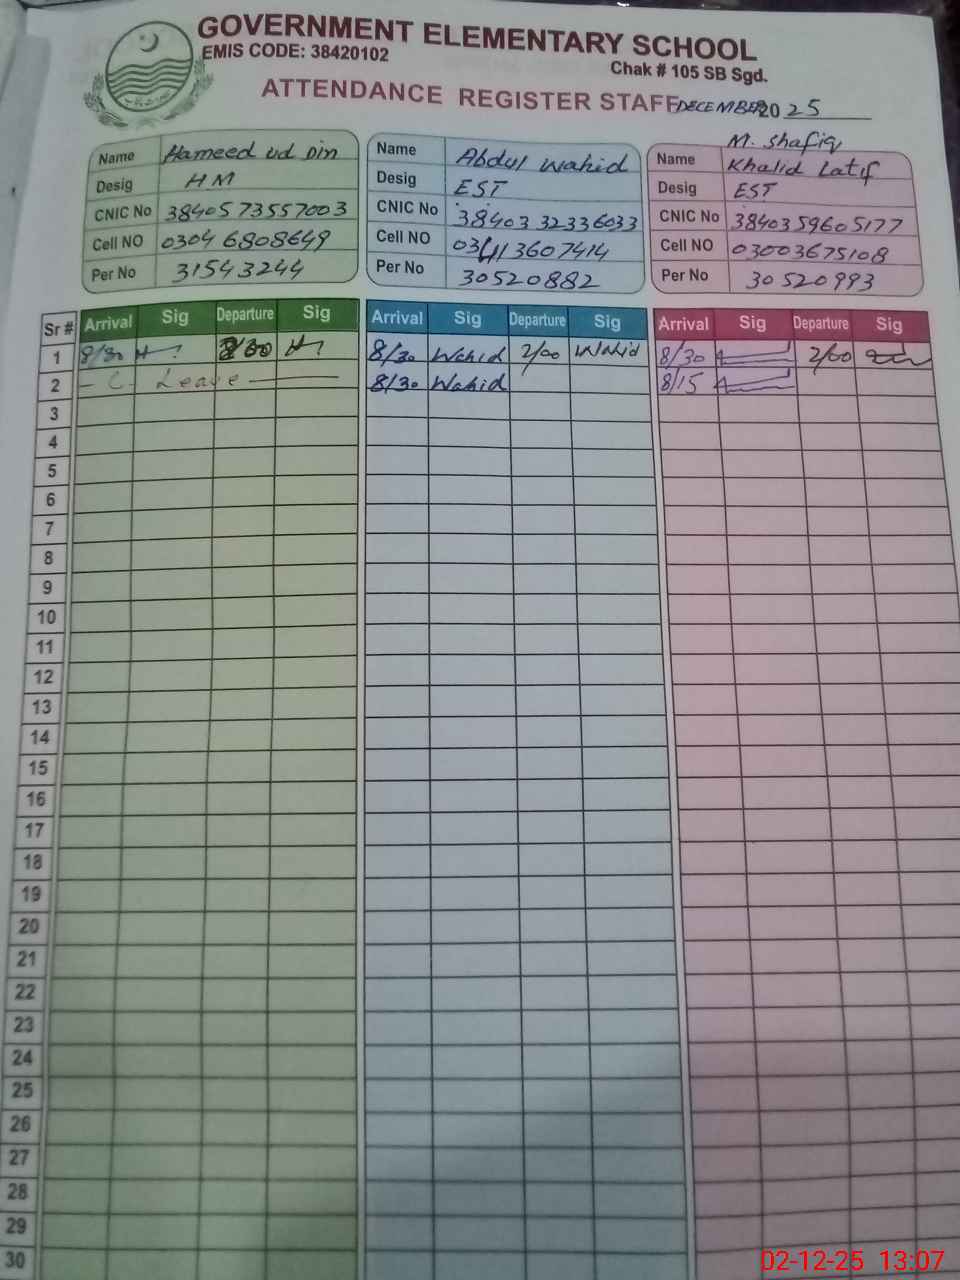 GOVERNMENT ELEMENTARY SCHOOL
EMIS CODE: 38420102
Chak # 105 SB Sgd.
ATTENDANCE REGISTER STAFF DECEMBER 2025
Name Hameed ud Din
Desig HM
CNIC No 3840573557003
Cell NO 03046808649
Per No 31543244
Name Abdul Wahid
Desig EST
CNIC No 3840332336033
Cell NO 3607414
Per No 30520882
M. Shafiq
Name Khalid Latif
Desig EST
CNIC No 3840359605177
Cell NO 03003675108
Per No 30520993
Sr # Arrival Sig Departure Sig Arrival Sig Departure Sig Arrival Sig Departure Sig
1 8/30 2/00 8/30 Wahid 2/00 Wahid 8/30 2/00
2 - C. Leave - 8/30 Wahid 8/15
3
4
5
6
7
8
9
10
11
12
13
14
15
16
17
18
19
20
21
22
23
24
25
26
27
28
29
30
02-12-25 13:07